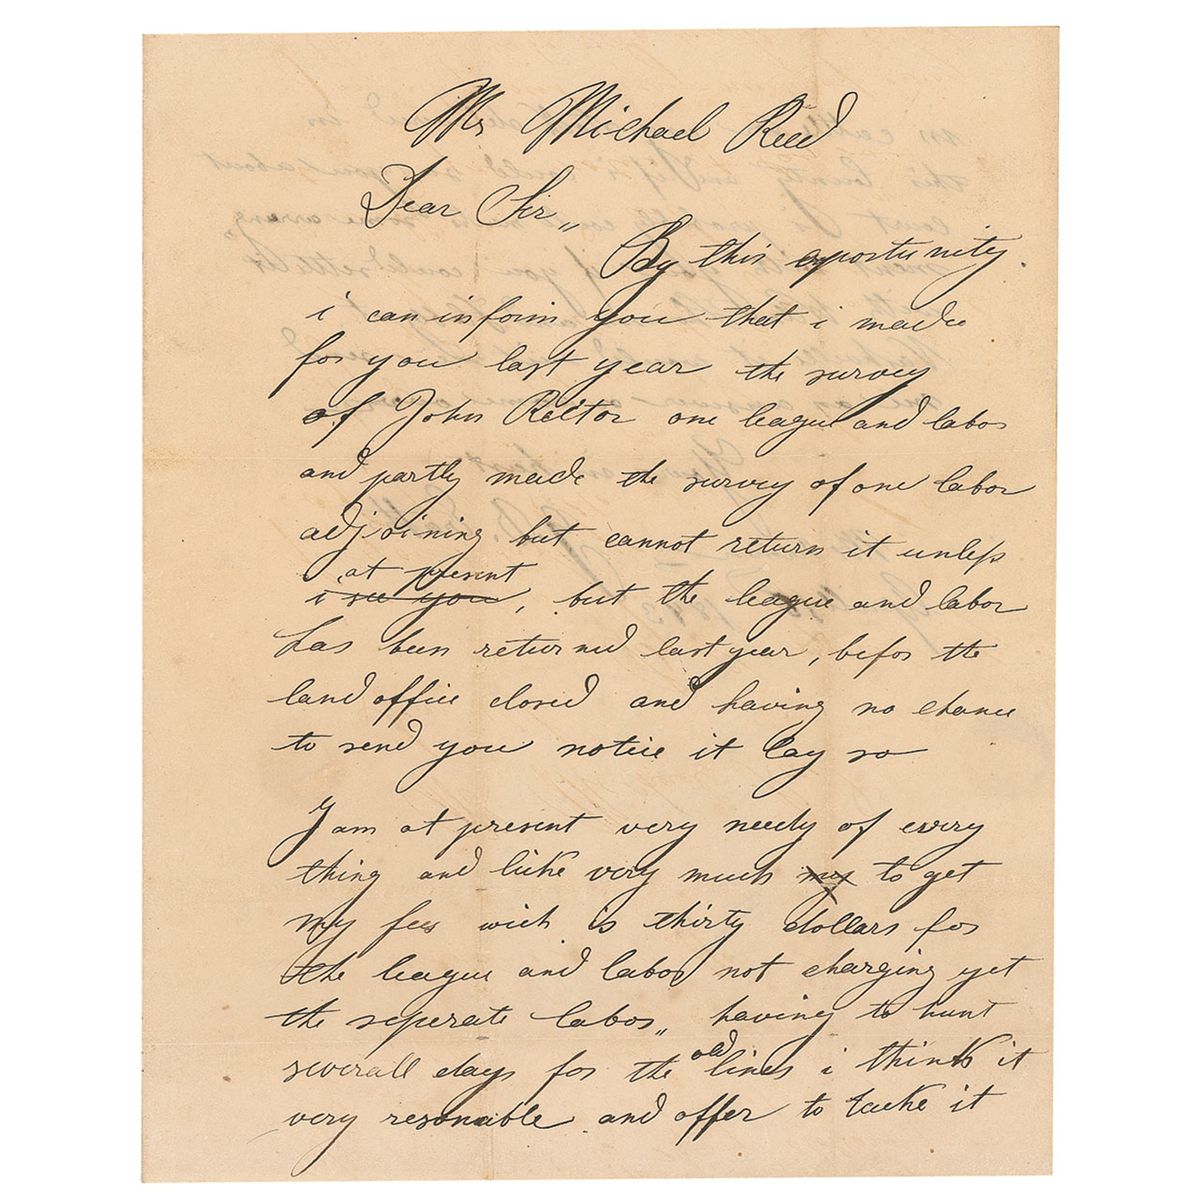 Mr Michael Reed
Dear Sir,,
By this opportunity
i can inform you that i made
for you last year the survey
of John Rector one league and labor
and partly made the survey of one labor
adjoining but cannot return it unless
at present
i see you, but the league and labor
has been returned last year, befor the
land office closed and having no chance
to send you notice it lay so
I am at present very needy of every
thing and like very much my to get
my fees wich is thirty dollars for
the league and labor not charging yet
the seperate labor,, having to hunt
severall days for the old lines i think it
very resonable and offer to tacke it